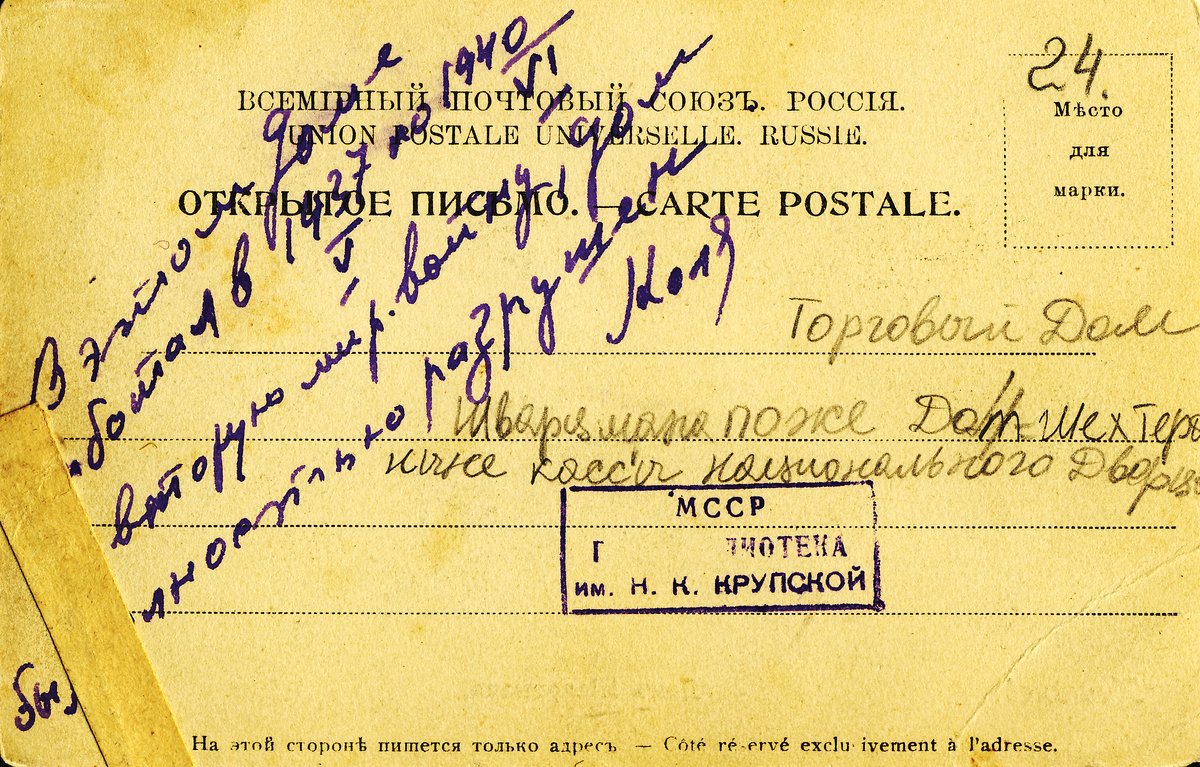 24.
ВСЕМІРНЫЙ ПОЧТОВЫЙ СОЮЗЪ. РОССІЯ.
UNION POSTALE UNIVERSELLE. RUSSIE.
ОТКРЫТОЕ ПИСЬМО. — CARTE POSTALE.
Мѣсто
для
марки.
В этом доме
ботал в 1927 по 1940
V VI
вторую мир. войну, дом
был
разрушен
Коля
Торговый Дом
Шварцмана позже Шехтера
ниже кассы национального Дворца
МССР
Г ЛИОТЕКА
им. Н. К. КРУПСКОЙ
На этой сторонѣ пишется только адресъ — Côté réservé exclusivement à l'adresse.